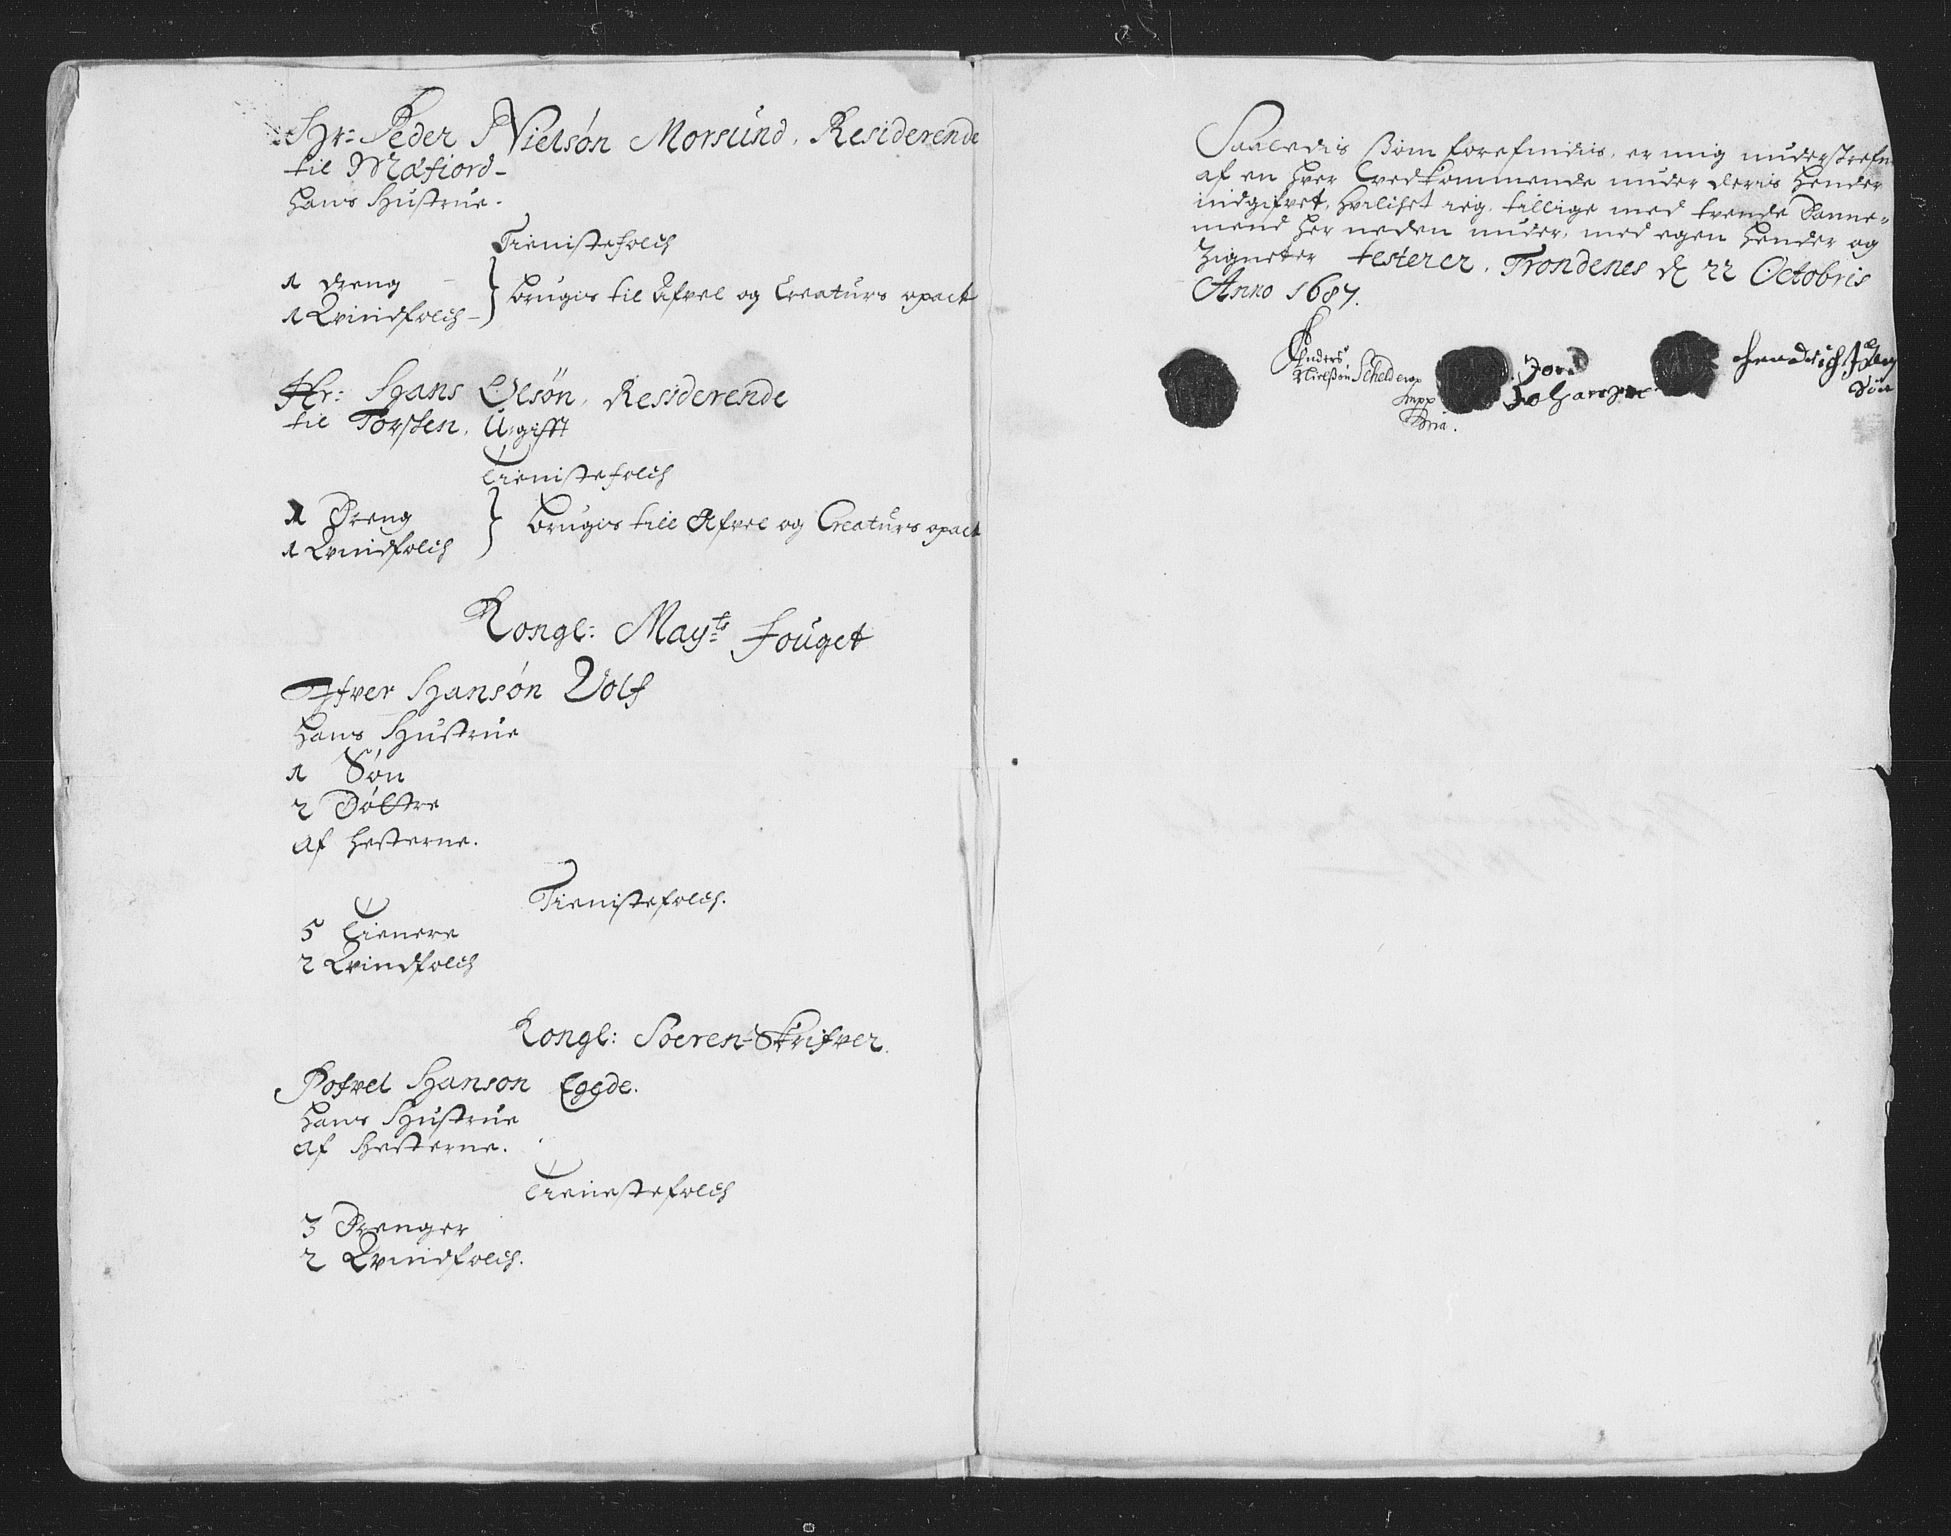 Hr: Peder Nielsøn Morsund, Residerende
til Mæfiord
hans Hustrue.
Tienistefolch
1 dreng
1 Qvindfolch
} brugis til Afvel og Creaturs opact
Hr: Hans Olsøn, Residerende
til Torsken, U:gifft
Tienistefolch
1 Dreng
1 Qvindfolch
} brugis till Afvel og Creaturs opact
Kongl: Mayts fouget
Ifver Hansøn Volf
hans Hustrue
1 Søn
2 Døttre
af hesterne.
Tienistefolch.
5 Tienere
2 Qvindfolch
Kongl: Soeren-Skrifver
Pofvel Hanson Egede.
hans Hustrue
af Hesterne.
Tienestefolch
3 Drenger
2 Qvindfolch.
Saaledis som forefindis, er mig underskrefn
af en hver vedkommende under deris hender
indgifvet, hvilchet ieg, tillige med tvende Danne=
mend her neden under, med egen hender og
Zigneter testerer, Trondenes d 22 Octobris
Anno 1687.
Anders
Nielsøn Schelderup
mpp
ria.
Jon
Johansen
Hendrich
Søn